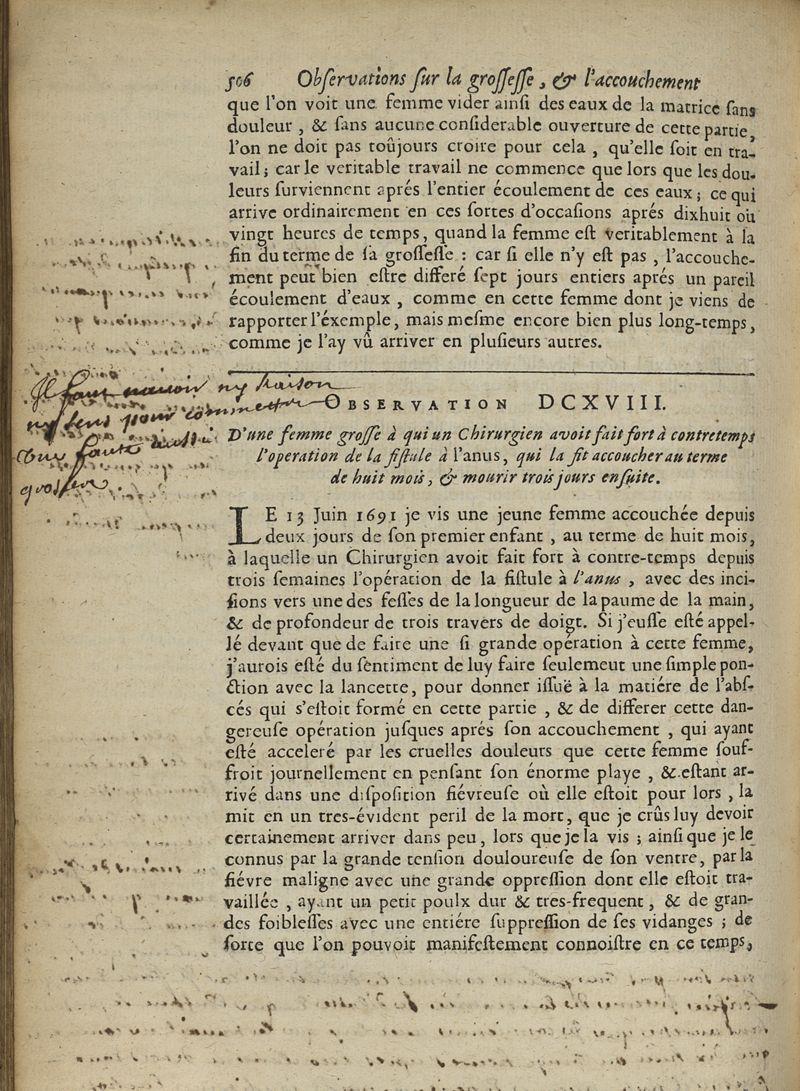 506 Obſervations ſur la groſſeſſe, & l'accouchement
que l'on voit une femme vider ainſi des eaux de la matrice ſans
douleur, & ſans aucune conſiderable ouverture de cette partie,
l'on ne doit pas toûjours croire pour cela, qu'elle ſoit en tra-
vail; car le veritable travail ne commence que lors que les dou-
leurs ſurviennent aprés l'entier écoulement de ces eaux; ce qui
arrive ordinairement en ces ſortes d'occaſions aprés dixhuit où
vingt heures de temps, quand la femme eſt veritablement à la
fin du terme de ſa groſſeſſe: car ſi elle n'y eſt pas, l'accouche-
ment peut bien eſtre differé ſept jours entiers aprés un pareil
écoulement d'eaux, comme en cette femme dont je viens de
rapporter l'éxemple, mais meſme encore bien plus long-temps,
comme je l'ay vû arriver en pluſieurs autres.
Il faut n'avoir ny raiſon
ny ſens pour commettre
OBSERVATION DCXVIII.
D'une femme groſſe à qui un Chirurgien avoit fait fort à contretemps
l'operation de la fiſtule à l'anus, qui la fit accoucher au terme
de huit mois, & mourir trois jours enſuite.
LE 13 Juin 1691 je vis une jeune femme accouchée depuis
deux jours de ſon premier enfant, au terme de huit mois,
à laquelle un Chirurgien avoit fait fort à contre-temps depuis
trois ſemaines l'opération de la fiſtule à l'anus, avec des inci-
ſions vers une des feſſes de la longueur de la paume de la main,
& de profondeur de trois travers de doigt. Si j'euſſe eſté appel-
lé devant que de faire une ſi grande opération à cette femme,
j'aurois eſté du ſentiment de luy faire ſeulemeut une ſimple pon-
ction avec la lancette, pour donner iſſuë à la matiére de l'abſ-
cés qui s'eſtoit formé en cette partie, & de differer cette dan-
gereuſe opération juſques aprés ſon accouchement, qui ayant
eſté acceleré par les cruelles douleurs que cette femme ſouf-
froit journellement en penſant ſon énorme playe, & eſtant ar-
rivé dans une diſpoſition fiévreuſe où elle eſtoit pour lors, la
mit en un tres-évident peril de la mort, que je crûs luy devoir
certainement arriver dans peu, lors que je la vis; ainſi que je le
connus par la grande tenſion douloureuſe de ſon ventre, par la
fiévre maligne avec une grande oppreſſion dont elle eſtoit tra-
vaillée, ayant un petit poulx dur & tres-frequent, & de gran-
des foibleſſes avec une entiére ſuppreſſion de ſes vidanges; de
ſorte que l'on pouvoit manifeſtement connoiſtre en ce temps,